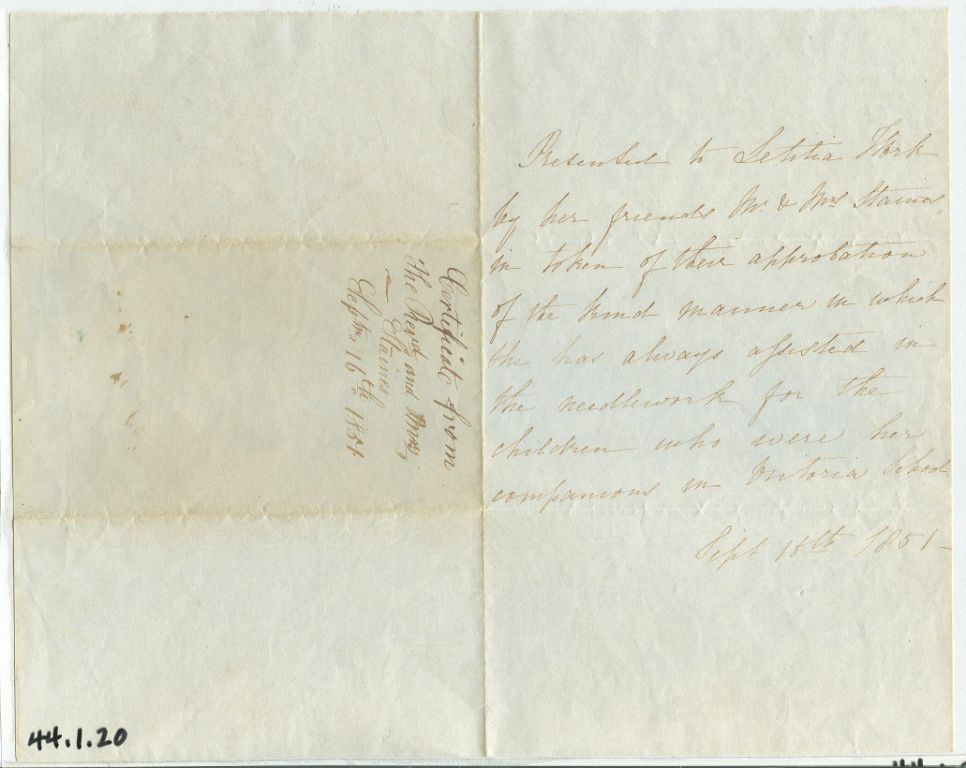 Certificate from
The Revd and Mrs,
Staines
Septr. 16th 1851
Presented to Letitia Work
by her friends Mr. & Mrs Staines,
in token of their approbation
of the kind manner in which
she has always assisted in
the needlework for the
children who were her
companions in Victoria School.
Sept 15th 1851-
44.1.20